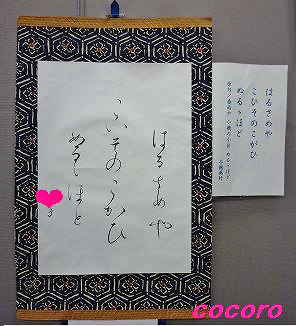 はるさめや
こいそのこかひ
ぬるゝほと
はるさめや
こひそのこがひ
ぬるゝほど
与謝蕪村
cocoro